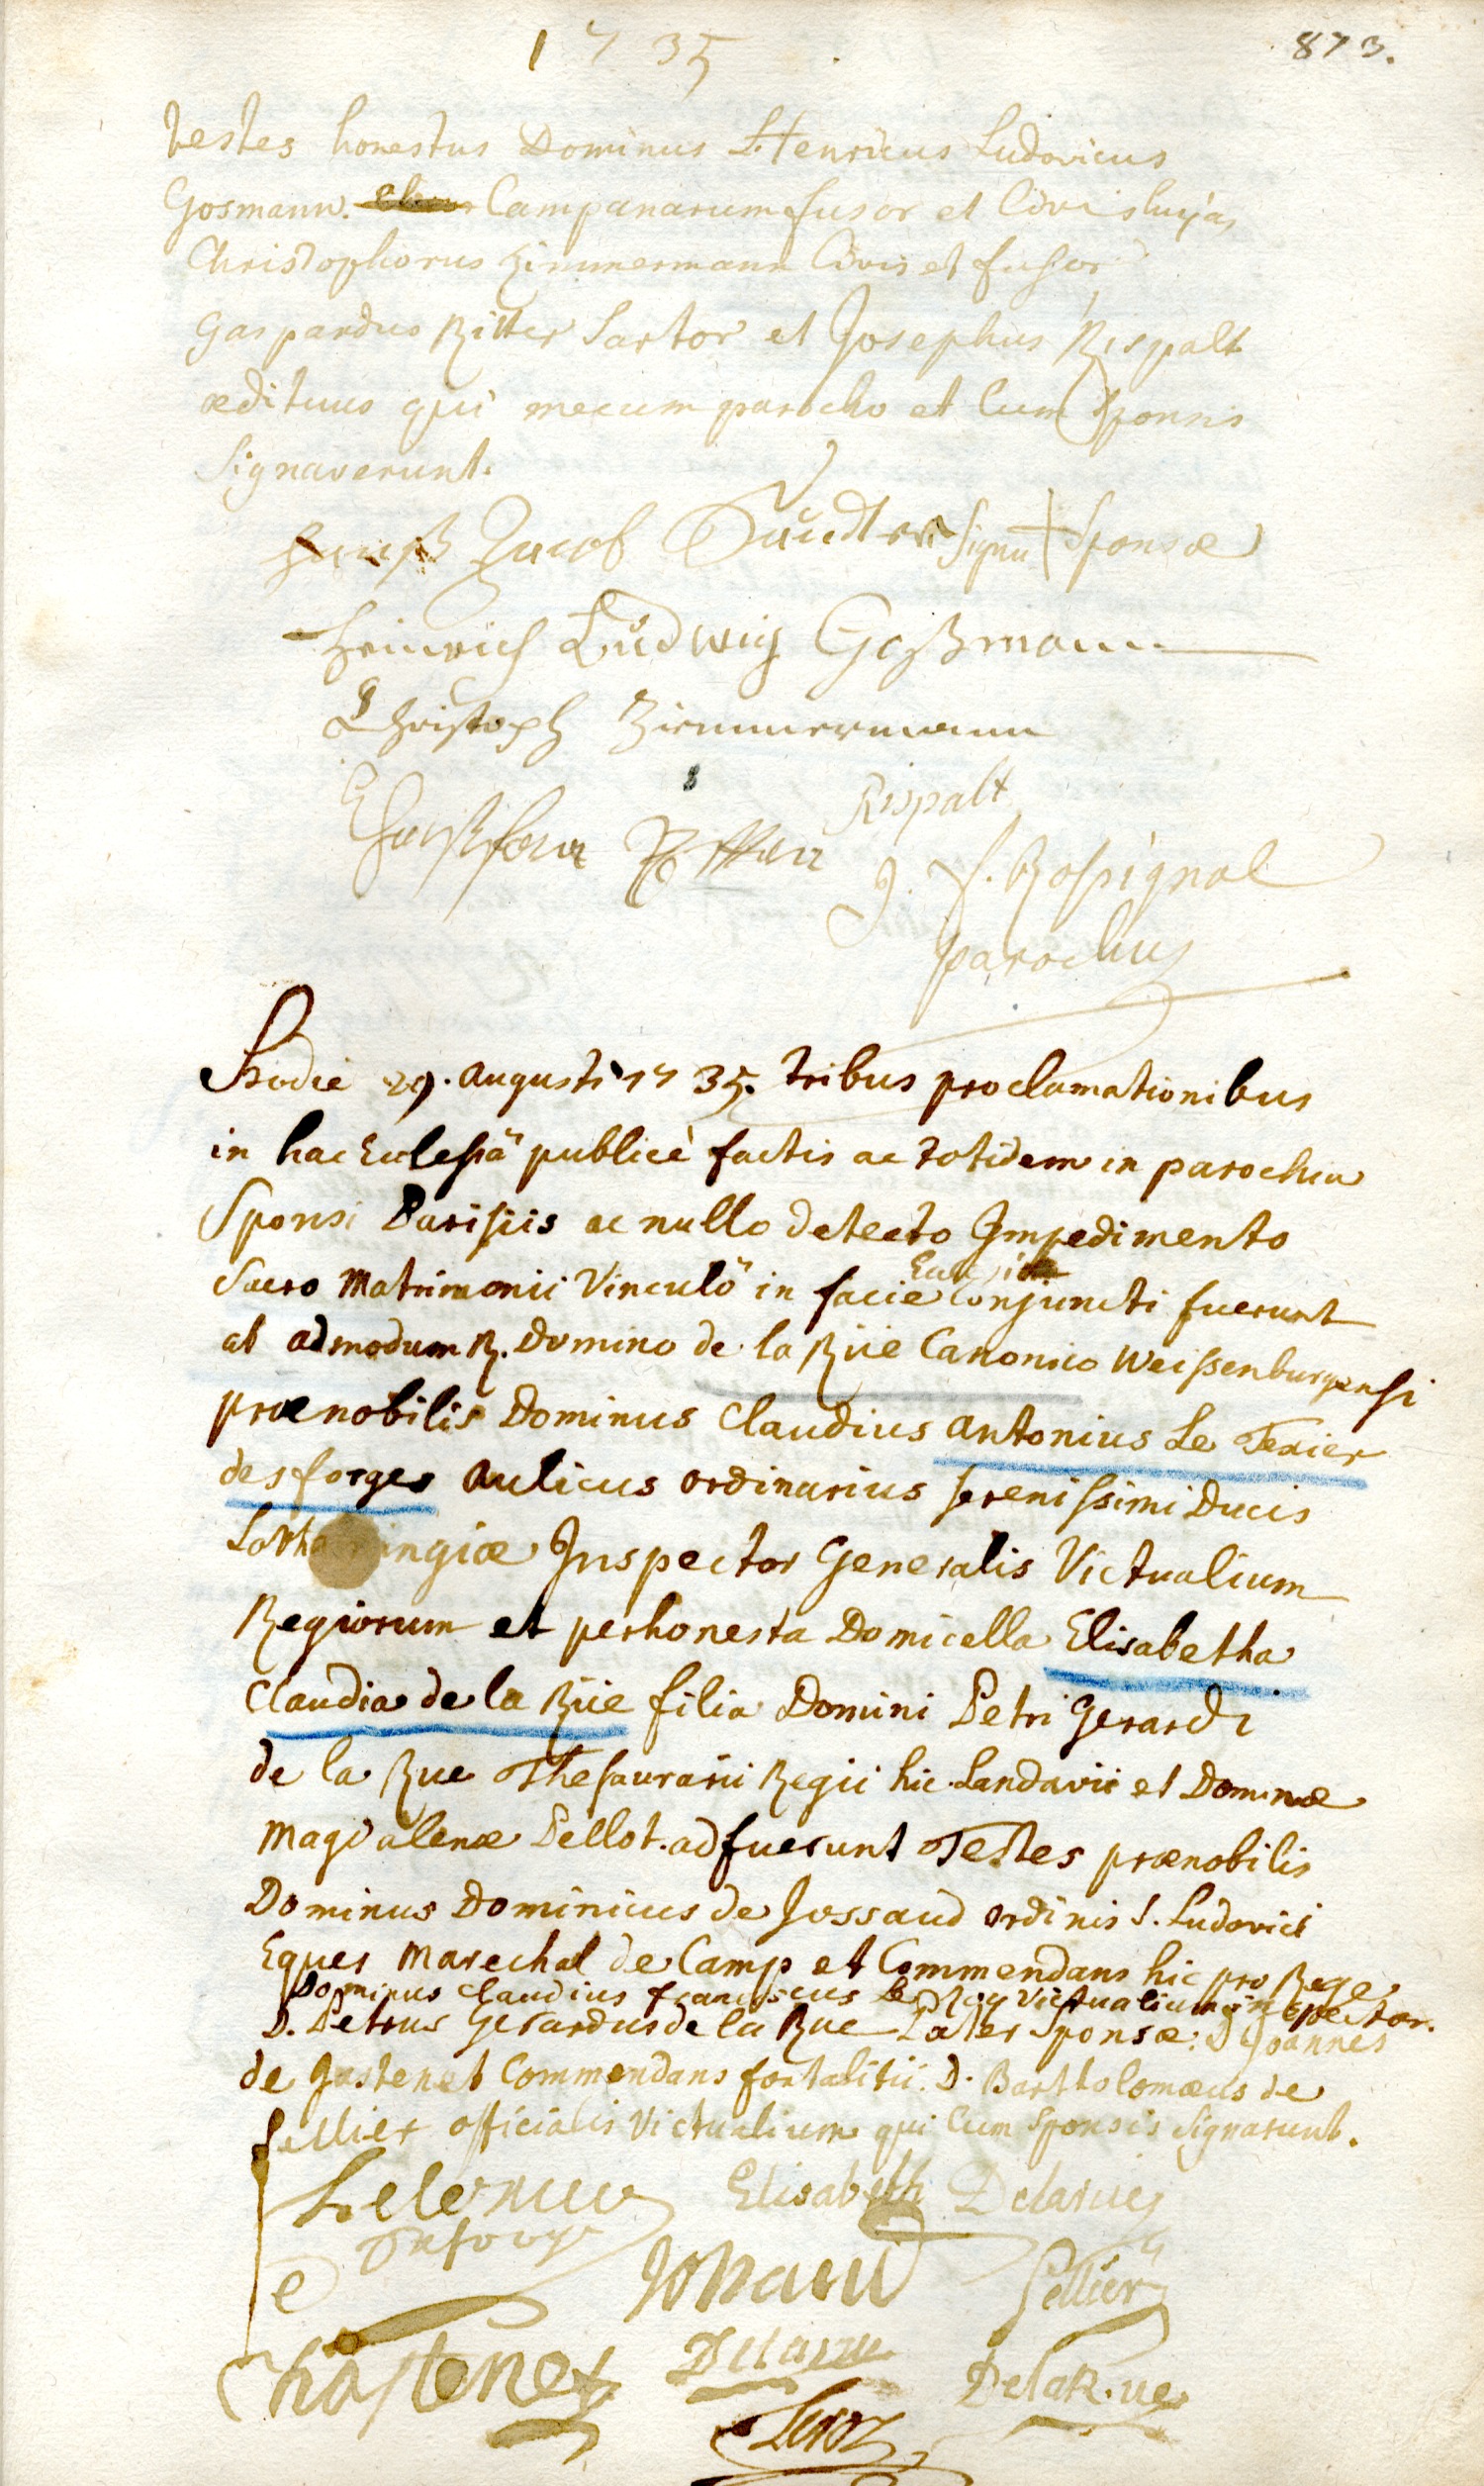 1735
873.
testes honestus Dominus Henricus Ludovicus
Gosmann. Campanarum fusor et Civis hujas,
Christophorus Zimmermann Civis et fusor
Gaspardus Ritter Sartor et Josephus Rispalt
ædituus qui mecum parocho et Cum Sponsis
Signaverunt.
Jacob Signū + Sponsæ
Heinrich Ludwig Goßmann
Christoph Zimmermann
Rispalt
J. F. Rossignol
parochus
Hodie 29. augusti 1735. tribus proclamationibus
in hac Ecclesiâ publicè factis ac totidem in parochia
Sponsi Parisiis ac nullo detecto Impedimento
Sacro Matrimonii Vinculô in facie Ecclesiæ Conjuncti fuerunt
ab admodum R. Domino de la Rüe Canonico Weissenburgensi
prænobilis Dominus Claudius antonius Le Texier
desforges aulicus ordinarius serenissimi Ducis
Lotharingiæ Inspector Generalis Victualium
Regiorum et perhonesta Domicella Elisabetha
Claudia de la Rüe filia Domini Petri Gerardi
de la Rue Thesaurarii Regii hic Landavii et Dominæ
Magdalenæ Pellot. adfuerunt Testes prænobilis
Dominus Dominicus de Jossaud ordinis S. Ludovici
Eques Marechal de Camp et Commendans hic pro Rege,
Dominus Claudius franciscus le Roy Victualium inspector.
D. Petrus Gerardus de la Rue Pater Sponsæ: D Joannes
de Gastenet Commendans fortalitii. D. Bartholomæus de
sellier officialis Victualium qui Cum Sponsis Signarunt.
Elisabeth Delarue
Sellier
Chastenet Delarue DelaRue
Leroy